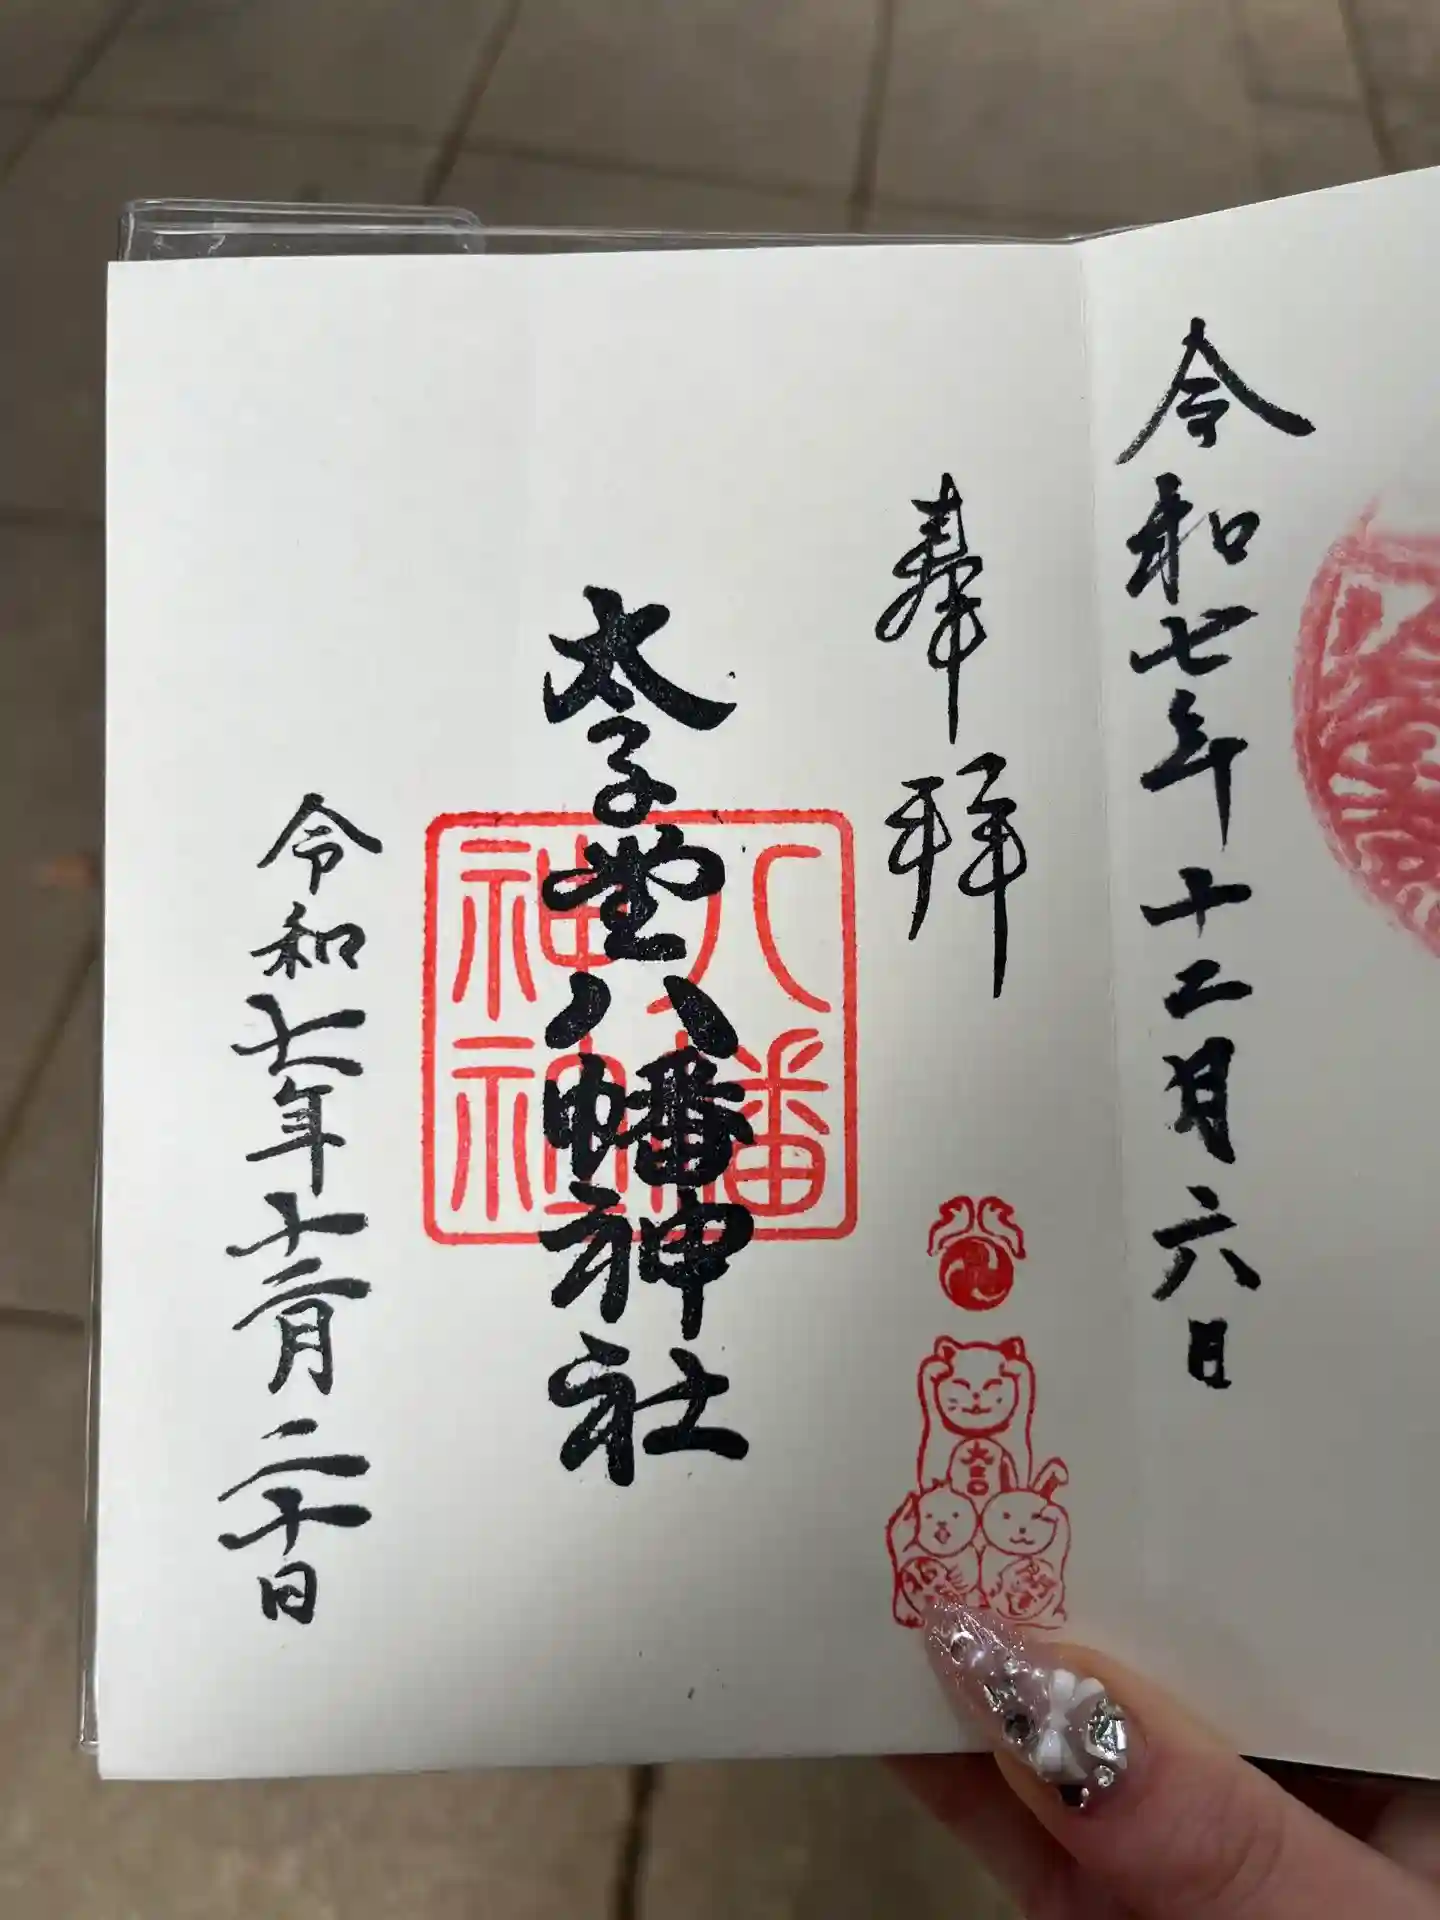 令和七年十二月六日
奉拝
太子堂八幡神社
八幡神社
大吉
令和七年十二月二十日